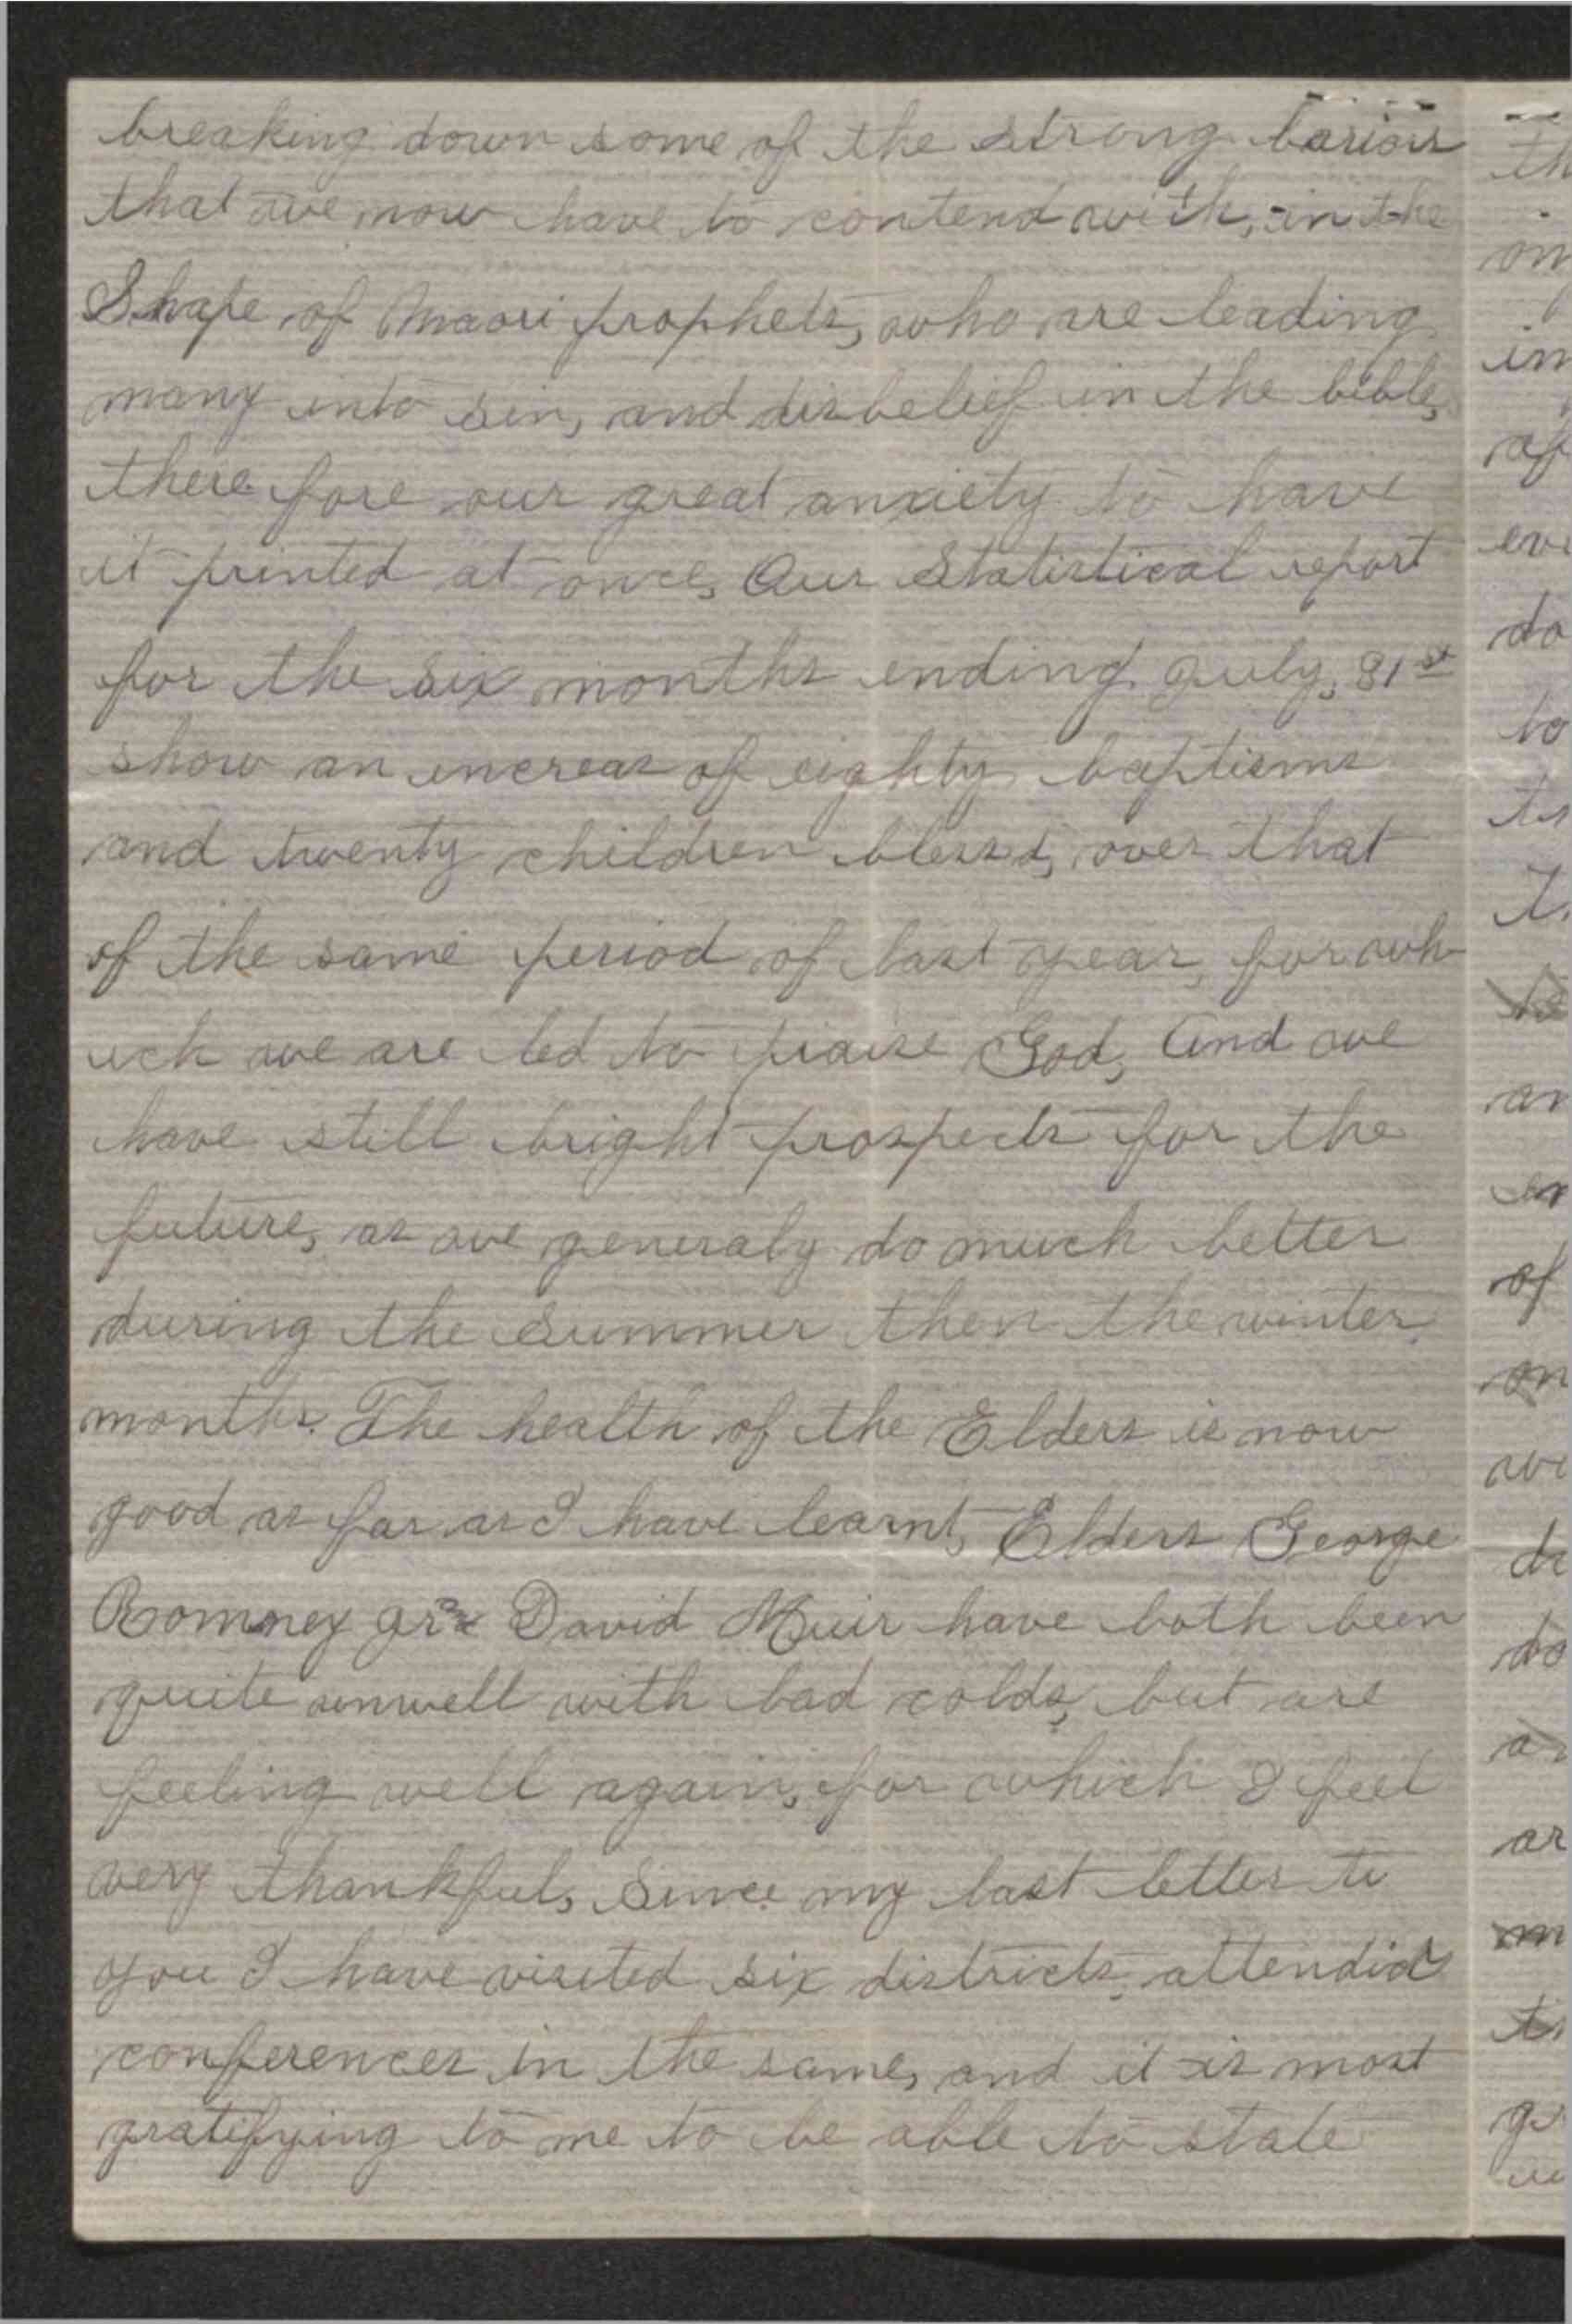 breaking down some of the strong bariors
that we now have to contend with, in the
Shape of Maori prophets, who are leading
many into sin, and disbelief in the bible,
there fore our great anxiety to have
it printed at once, Our Statistical report
for the six months ending July, 31st
show an increas of eighty baptisms
and twenty children blessd, over that
of the same period of last year, for wh-
ich we are led to praise God, And we
have still bright prospects for the
future, as we generaly do much better
during the Summer then the winter
months. The health of the Elders is now
good as far as I have learnt, Elders George
Romney Jr & David Muir have both been
quite unwell with bad colds, but are
feeling well again, for which I feel
very thankful, Since my last letter to
you I have visited six districts, attendid
conferences in the same, and it is most
gratifying to me to be able to state